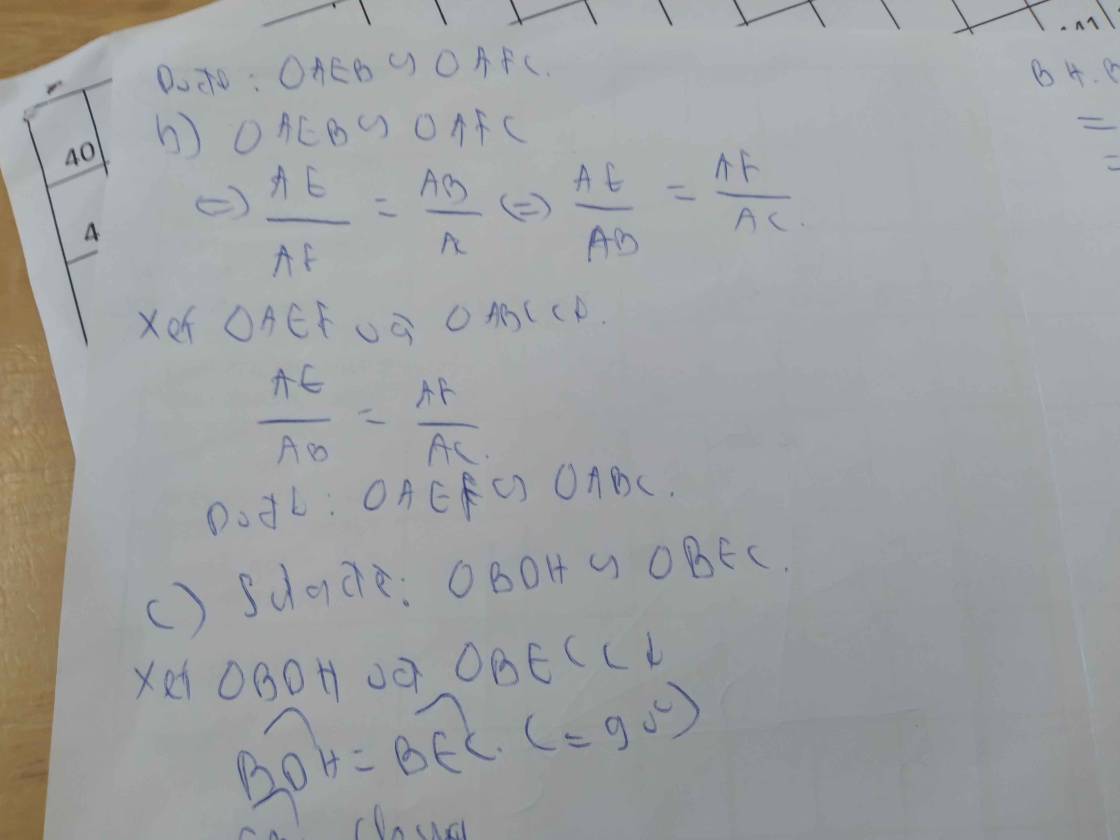 Do đó: △AEB ∽ △AFC.
b) △AEB ∽ △AFC
⇔ AE/AF = AB/AC ⇔ AE/AB = AF/AC.
Xét △AEF và △ABC có.
AE/AB = AF/AC.
Do đó: △AEF ∽ △ABC.
c) △BDH ∽ △BEC.
Xét △BDH và △BEC có
BDH = BEC. (= 90°)
chung
40
4
BH.B
=
=